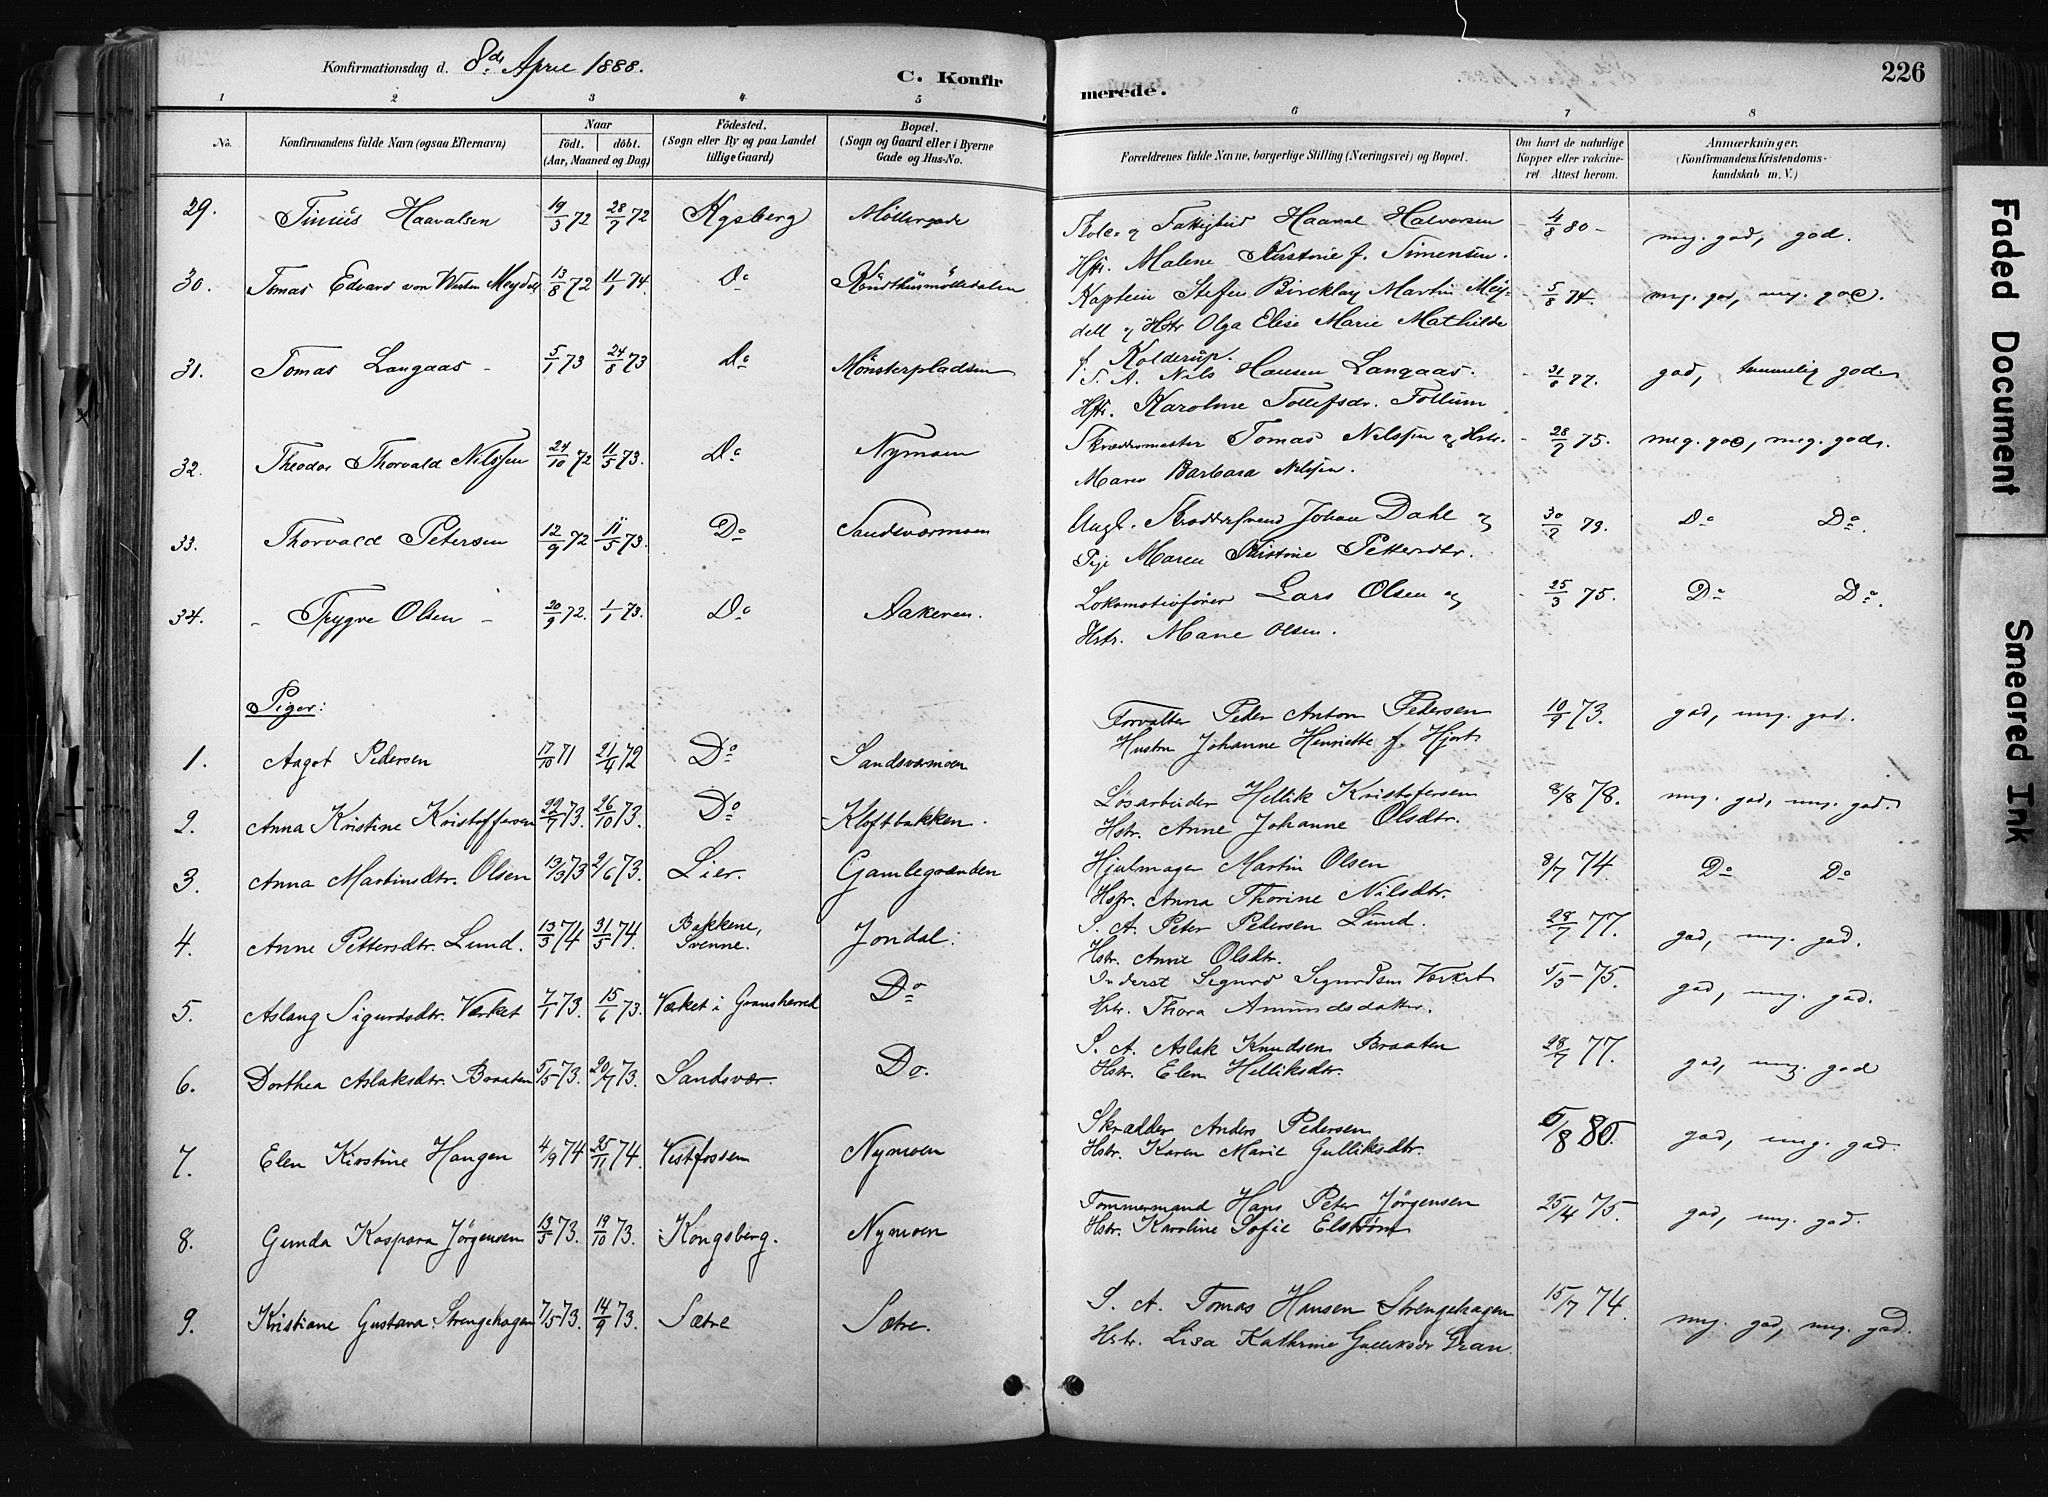 Konfirmationsdag d. 8de April 1888.
C. Konfirmerede.
226
1 2 3 4 5 6 7 8
No.
Konfirmandens fulde Navn (ogsaa Efternavn)
Naar
födt. döbt.
(Aar, Maaned og Dag)
Födested.
(Sogn eller By og paa Landet
tillige Gaard)
Bopæl.
(Sogn og Gaard eller i Byerne
Gade og Hus-No.
Forældrenes fulde Navne, borgerlige Stilling (Næringsvei) og Bopæl.
Om havt de naturlige
Kopper eller vakcine-
ret. Attest herom.
Anmærkninger.
(Konfirmandens Kristendoms-
kundskab m. V.)
29. Tinius Haavalsen 19/3 72 28/7 72 Kgsberg Möllergade og Fattigbud Haaval Halvorsen 4/8 80 meg. god, god.
Hstr. Malene Kirstine f. Simensen.
30. Tomas Edvard von Westen Meydell 13/8 72 11/1 74. Do Kaptein Steffen Martin Mey- 5/8 74. meg. god, meg. god.
dell og Hstr Olga Elise Marie Mathilde
f. Kolderup.
31. Tomas Langaas 5/1 73 24/8 73 Do Mönsterpladsen S. A. Nils Hansen Langaas. 31/8 77. god, temmelig god
Hstr. Karoline Tollefsdr. Follum
32. Theodor Thorvald Nilssen 24/10 72 11/5 73. Do Nymoen Skræddermester Tomas Nilssen og Hstr. 28/2 75. meg. god, meg. god.
Maren Barbara Nilsen.
33. Thorvald Petersen 12/9 72 11/5 73. Do Sandsværmoen Ungk. Skræddersvend Johan Dahl og 30/2 73. Do Do.
Pige Maren Kirstine Pettersdtr.
34. Trygve Olsen 20/9 72. 1/1 73. Do Aakeren. Lokomotivförer Lars Olsen og 25/3 75. Do Do.
Hstr. Marie Olsen.
Piger:
1. Aagot Pedersen 17/10 71 21/4 72 Do Sandsværmoen Forvalter Peter Anton Pedersen 10/9 73. god, meg. god.
Hustru Johanne Henriette f. Hjort
2. Anna Kristine Kristoffersen 22/7 73. 26/10 73. Do Kloftbakken. Lösarbeider Hellik Kristofersen 8/8 78. meg. god, meg. god.
Hstr. Anne Johanne Olsdtr.
3. Anna Martinsdtr. Olsen 13/3 73 2/6 73. Lier. Gamlegrænden Hjulmager Martin Olsen 8/7 74 Do Do
Hstr. Anna Thorine Nilsdtr.
4. Anne Pettersdtr. Lund. 13/3 74 31/5 74. Bakkene,
Svenne. Jondal. S. A. Peter Pedersen Lund. 28/7 77. god, meg. god.
Hstr. Anne Olsdtr.
5. Aslaug Sigurdsdtr. Værket 7/1 73. 15/6 73. Værket i Gransherred Do Inderst Sigurd Sigurdsen Værket 5/5 75. god, meg. god.
Hstr. Thora Amundsdatter.
6. Dorthea Aslaksdtr. Braaten 5/5 73. 20/7 73. Sandsvær. Do. S. A. Aslak Knudsen Braaten 28/7 77. god, meg. god
Hstr. Elen Helliksdtr.
7. Elen Kirstine Hangen 4/9 74 25/11 74. Vestfossen Nymoen Skrædder Anders Pedersen 5/8 80. god, meg. god.
Hstr. Karen Marie Gulliksdtr.
8. Gunda Kaspara Jörgensen 13/5 73. 19/10 73. Kongsberg. Nymoen Tömmermand Hans Peter Jörgensen 25/4 75. god, meg. god.
Hstr. Karoline Sofie Elström
9. Kristiane Gustava Strengehagen 7/5 73. 14/9 73. Sætre Sætre. S. A. Tomas Hansen Strengehagen 15/7 74. meg. god, meg. god.
Hstr. Lisa Kathrine Gulliksdr Gran.
Faded Document
Smeared Ink